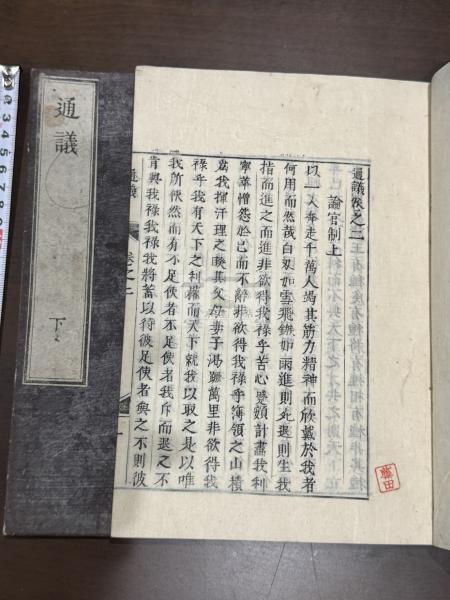 通議
下
通議卷之二
論官制上
以一人奔走千萬人竭其筋力精神而欣戴於我者
何用而然哉白刃如雪飛鏃如雨進則死退則生我
指而進之而進非欲得我祿乎苦心焦頭計畫我利
寧華憎怨於己而不辭非欲得我祿乎簿領之山積
為我揮汗理之睽其父母妻子鴻驪萬里非欲得我
祿乎我有天下之利權而天下就以取之是以唯
我所供然而有不足使者不足使我斥而退之不
肯與我祿我祿我將蓄以待彼足使者與之不則彼
通議
卷之二
一
藤田